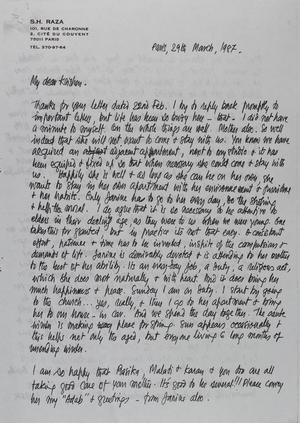 S.H. RAZA
101, RUE DE CHARONNE
2, CITÉ DU COUVENT
75011 PARIS
TEL. 370-87-64
Paris, 29th March, 1987.
My dear Krishen,
Thanks for your letter dated 23rd Feb. I try to reply back promptly to
important letters, but life has been so busy here that I did not have
a minute to myself. On the whole things are well. Mother also. So well
indeed that she will not want to come & stay with us. You know we have
acquired an adjacent appartment, next to our studio & it has
been equipped & fixed up so that when necessary she could come & stay with
us. Happily she is well & as long as she can be on her own, she
wants to stay in her own apartment with her environment &
& her habits. Only Janine has to go to her every day, do the
& help the
I do agree that it is so necessary to be attentive to
elders in their delicate age as they were to us when we were young. One
takes this for granted but in practice its not that easy. A constant
effort, patience & time has to be invented, inspite of the compulsions &
demands of life. Janine is admirably devoted & is attending to her mother
to the best of her ability. Its an everyday job, a duty, a
act,
which she does most naturally & with heart. And this does bring her
much happiness & peace. Sunday I am on duty. I start by going
to the church... yes, really & then I go to her apartment & bring
her to our house - in car. And we spend the day together. The
winter is making place for spring. Sun appears occasionally &
this helps not only the aged, but everyone living 6 long months of
winter.
I am so happy that Basika, Malati & Karan & you too are all
taking good care of your mother. It's good to be several!! Please convey
her my "Adab" & greetings - from Janine also.